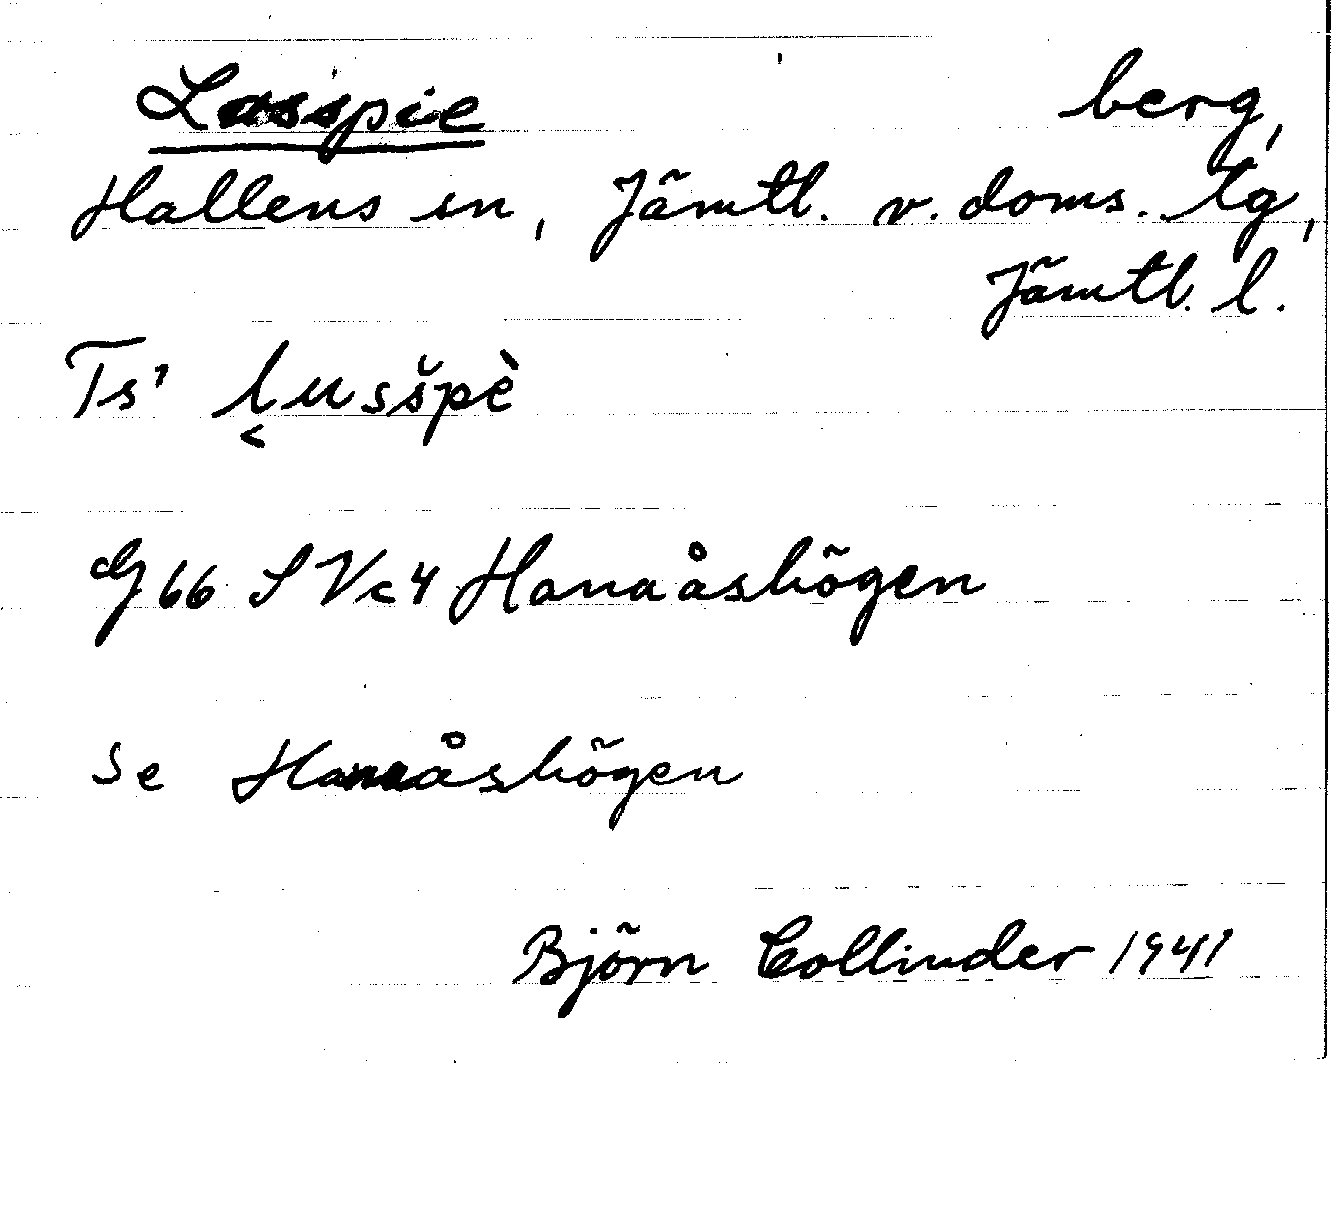 Lusspie berg,
Hallens sn, Jämtl. v. doms. tg,
Jämtl. l.
Ts' l̬usšpè
G 66 SVc4 Hanaåshögen
Se Hanaåshögen
Björn Collinder 1941